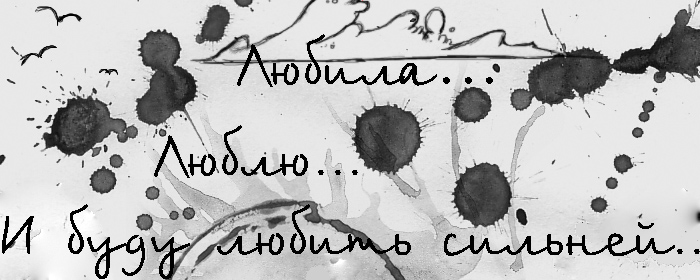 Любила...
Люблю...
И буду любить сильней..